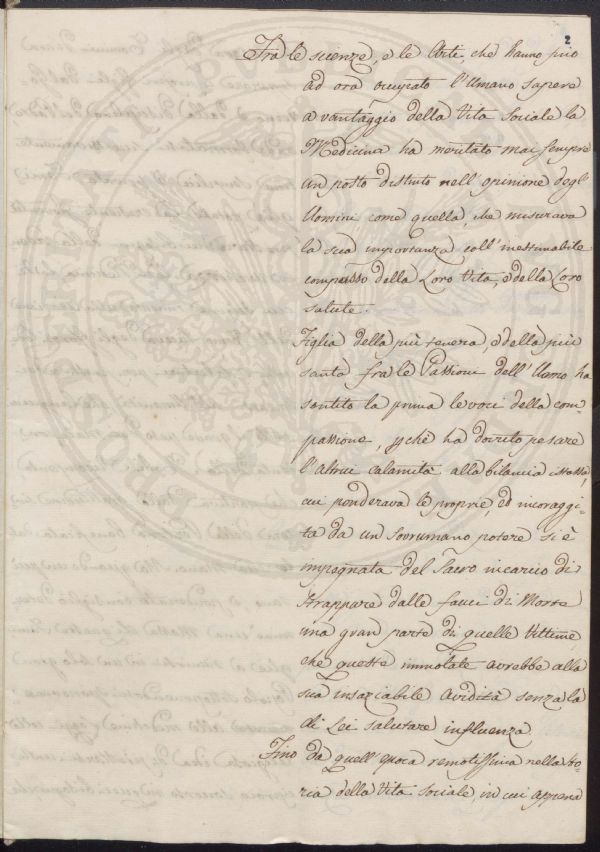 2
Fra le scienze, e le Arti, che hanno fino
ad ora occupato l'Umano sapere
a vantaggio della Vita Sociale la
Medicina ha meritato mai sempre
un posto distinto nell'opinione degl'
Uomini come quella, che misurava
la sua importanza coll'inestimabile
compenso della Loro Vita, e della Loro
salute.
Figlia della più tenera, e della più
santa fra le Passioni dell'Uomo ha
sentito la prima le voci della com-
passione, pchè ha dovuto pesare
l'altrui calamità alla bilancia istessa,
cui ponderava le proprie, ed incoraggi-
ta da un sovrumano potere si è
impegnata del Sacro incarico di
strappare dalle fauci di Morte
una gran parte di quelle Vittime,
che queste immolate avrebbe alla
sua insaziabile avidità senza la
di Lei salutare influenza.
Fino da quell'epoca remotissima nella Sto-
ria della Vita Sociale, in cui appena